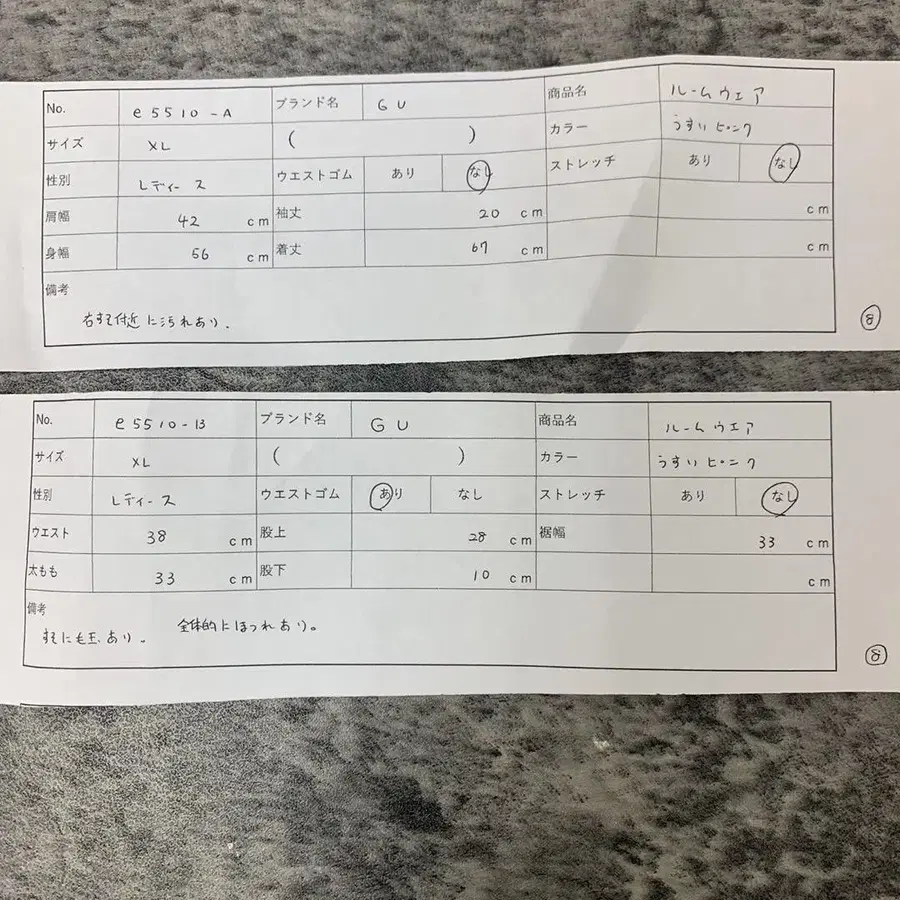 No. e5510-A ブランド名 GU 商品名 ルームウェア
サイズ XL ( ) カラー うすいピンク
性別 レディース ウエストゴム あり なし ストレッチ あり なし
肩幅 42 cm 袖丈 20 cm cm
身幅 56 cm 着丈 67 cm cm
備考
右すそ付近に汚れあり.
8
No. e5510-B ブランド名 GU 商品名 ルームウェア
サイズ XL ( ) カラー うすいピンク
性別 レディース ウエストゴム あり なし ストレッチ あり なし
ウエスト 38 cm 股上 28 cm 裾幅 33 cm
太もも 33 cm 股下 10 cm cm
備考
すそに毛玉あり。 全体的にほつれあり。
8